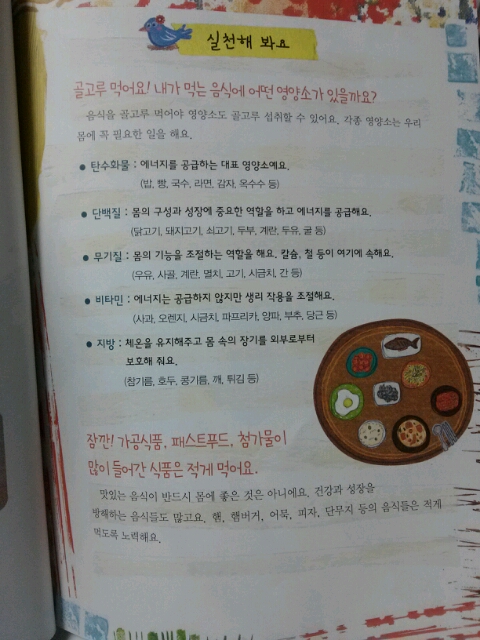 실천해 봐요
골고루 먹어요! 내가 먹는 음식에 어떤 영양소가 있을까요?
음식을 골고루 먹어야 영양소도 골고루 섭취할 수 있어요. 각종 영양소는 우리
몸에 꼭 필요한 일을 해요.
• 탄수화물 : 에너지를 공급하는 대표 영양소예요.
(밥, 빵, 국수, 라면, 감자, 옥수수 등)
• 단백질 : 몸의 구성과 성장에 중요한 역할을 하고 에너지를 공급해요.
(닭고기, 돼지고기, 쇠고기, 두부, 계란, 두유, 굴 등)
• 무기질 : 몸의 기능을 조절하는 역할을 해요. 칼슘, 철 등이 여기에 속해요.
(우유, 사골, 계란, 멸치, 고기, 시금치, 간 등)
• 비타민 : 에너지는 공급하지 않지만 생리 작용을 조절해요.
(사과, 오렌지, 시금치, 파프리카, 양파, 부추, 당근 등)
• 지방 : 체온을 유지해주고 몸 속의 장기를 외부로부터
보호해 줘요.
(참기름, 호두, 콩기름, 깨, 튀김 등)
잠깐! 가공식품, 패스트푸드, 첨가물이
많이 들어간 식품은 적게 먹어요.
맛있는 음식이 반드시 몸에 좋은 것은 아니에요. 건강과 성장을
방해하는 음식들도 많고요. 햄, 햄버거, 어묵, 피자, 단무지 등의 음식들은 적게
먹도록 노력해요.